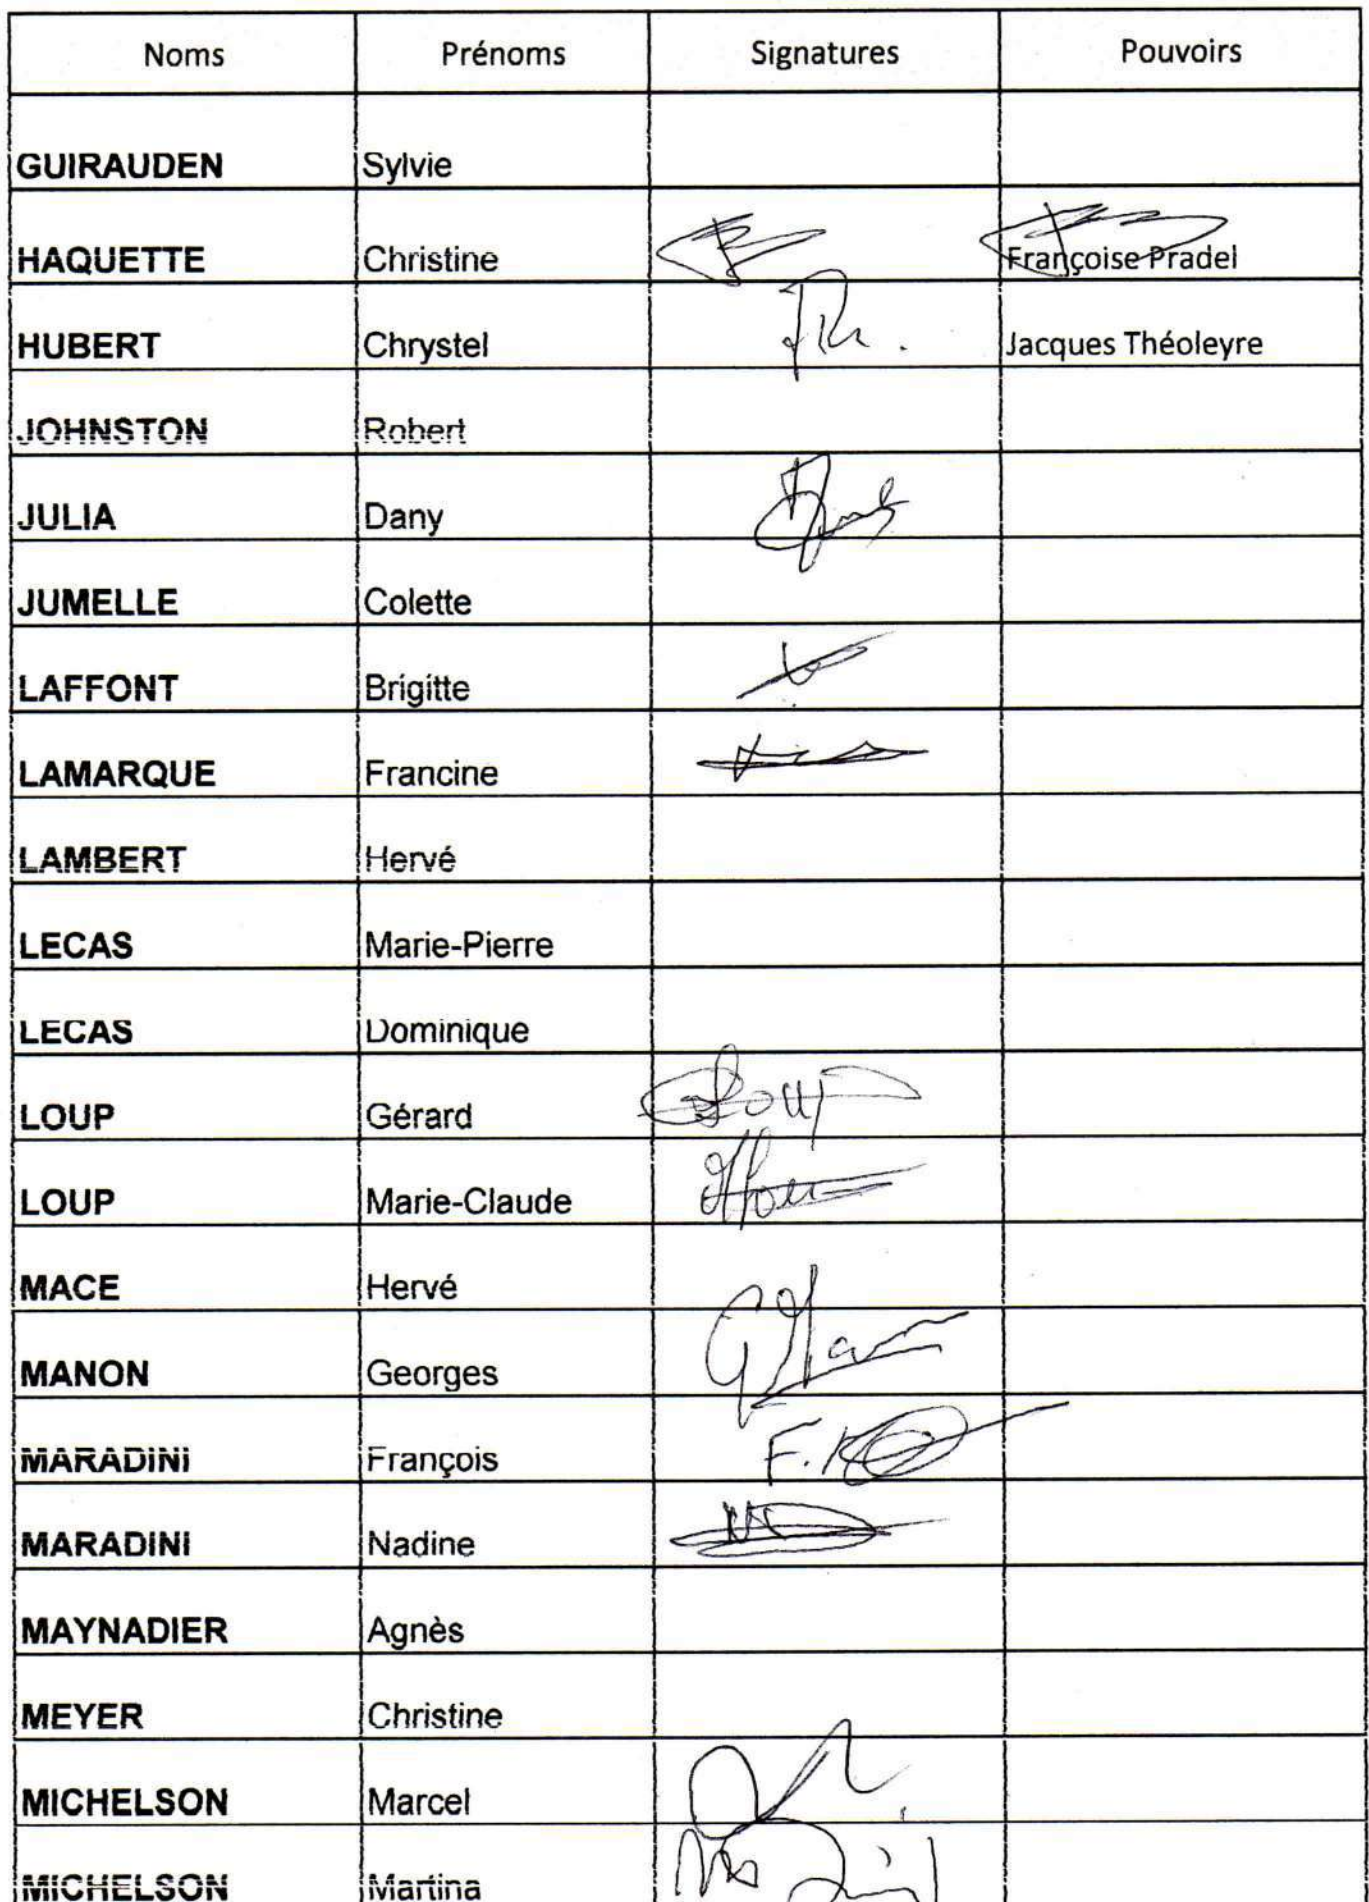 Noms Prénoms Signatures Pouvoirs
GUIRAUDEN Sylvie
HAQUETTE Christine Françoise Pradel
HUBERT Chrystel Jacques Théoleyre
JOHNSTON Robert
JULIA Dany
JUMELLE Colette
LAFFONT Brigitte
LAMARQUE Francine
LAMBERT Hervé
LECAS Marie-Pierre
LECAS Dominique
LOUP Gérard Loup
LOUP Marie-Claude
MACE Hervé
MANON Georges
MARADINI François
MARADINI Nadine
MAYNADIER Agnès
MEYER Christine
MICHELSON Marcel
MICHELSON Martina